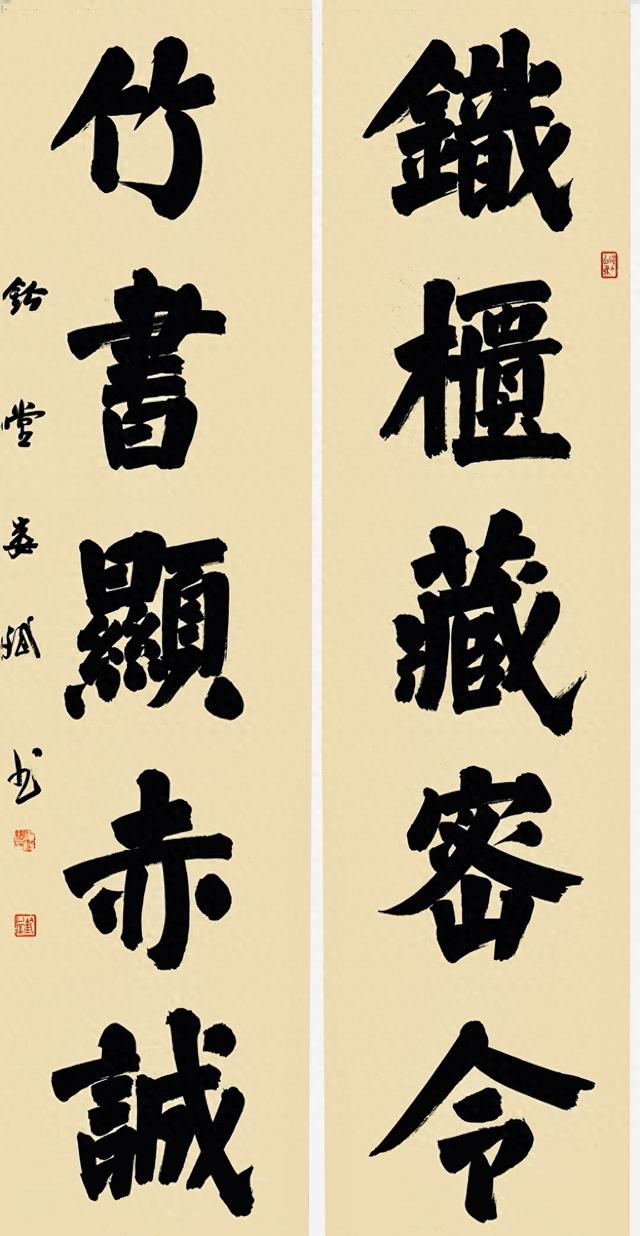 鐵櫃藏密令
竹書顯赤誠
鈐堂婁斌书